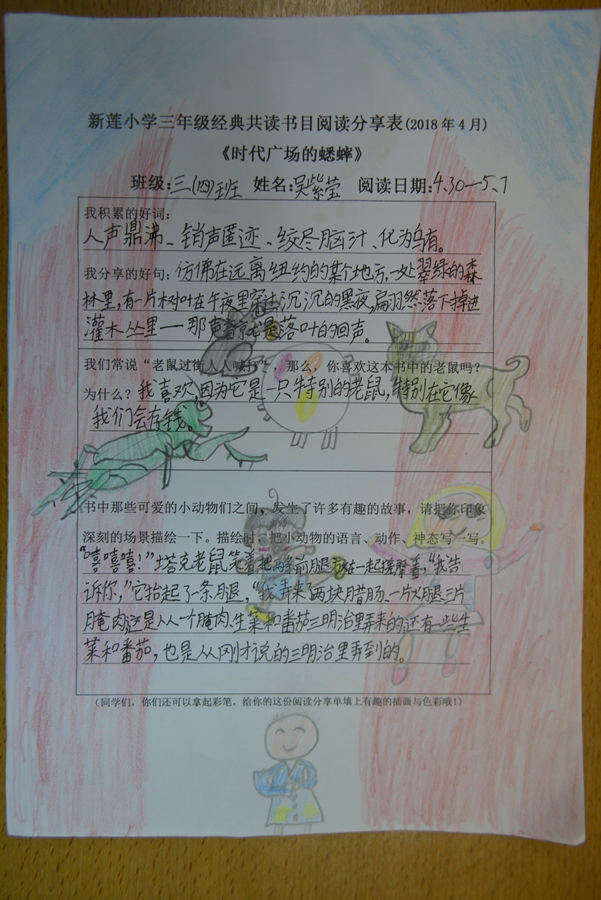 新莲小学三年级经典共读书目阅读分享表(2018年4月)
《时代广场的蟋蟀》
班级:三(四)班 姓名:吴紫莹 阅读日期:4.30—5.7
我积累的好词:
人声鼎沸、销声匿迹、绞尽脑汁、化为乌有。
我分享的好句:仿佛在远离纽约的某个地方,一处翠绿的森
林里,有一片树叶在午夜里穿过沉沉的黑夜,扁羽然落下掉进
灌木丛里——那声音就是落叶的回声。
我们常说“老鼠过街人人喊打”,那么,你喜欢这本书中的老鼠吗?
为什么?我喜欢,因为它是一只特别的老鼠,特别在它像
我们会存钱。
书中那些可爱的小动物们之间,发生了许多有趣的故事,请把你印象
深刻的场景描绘一下。描绘时,把小动物的语言、动作、神态写一写。
“嘻嘻嘻!”塔克老鼠笑着把两条前腿放在一起搓摩着,“我告
诉你,”它抬起了一条腿,“我弄来了两块腊肠、一片火腿、三片
腌肉,这是从一个腌肉、生菜和番茄三明治里弄来的,还有一些生
菜和番茄,也是从刚才说的三明治里弄到的。
(同学们,你们还可以拿起彩笔,给你的这份阅读分享单填上有趣的插画与色彩哦!)